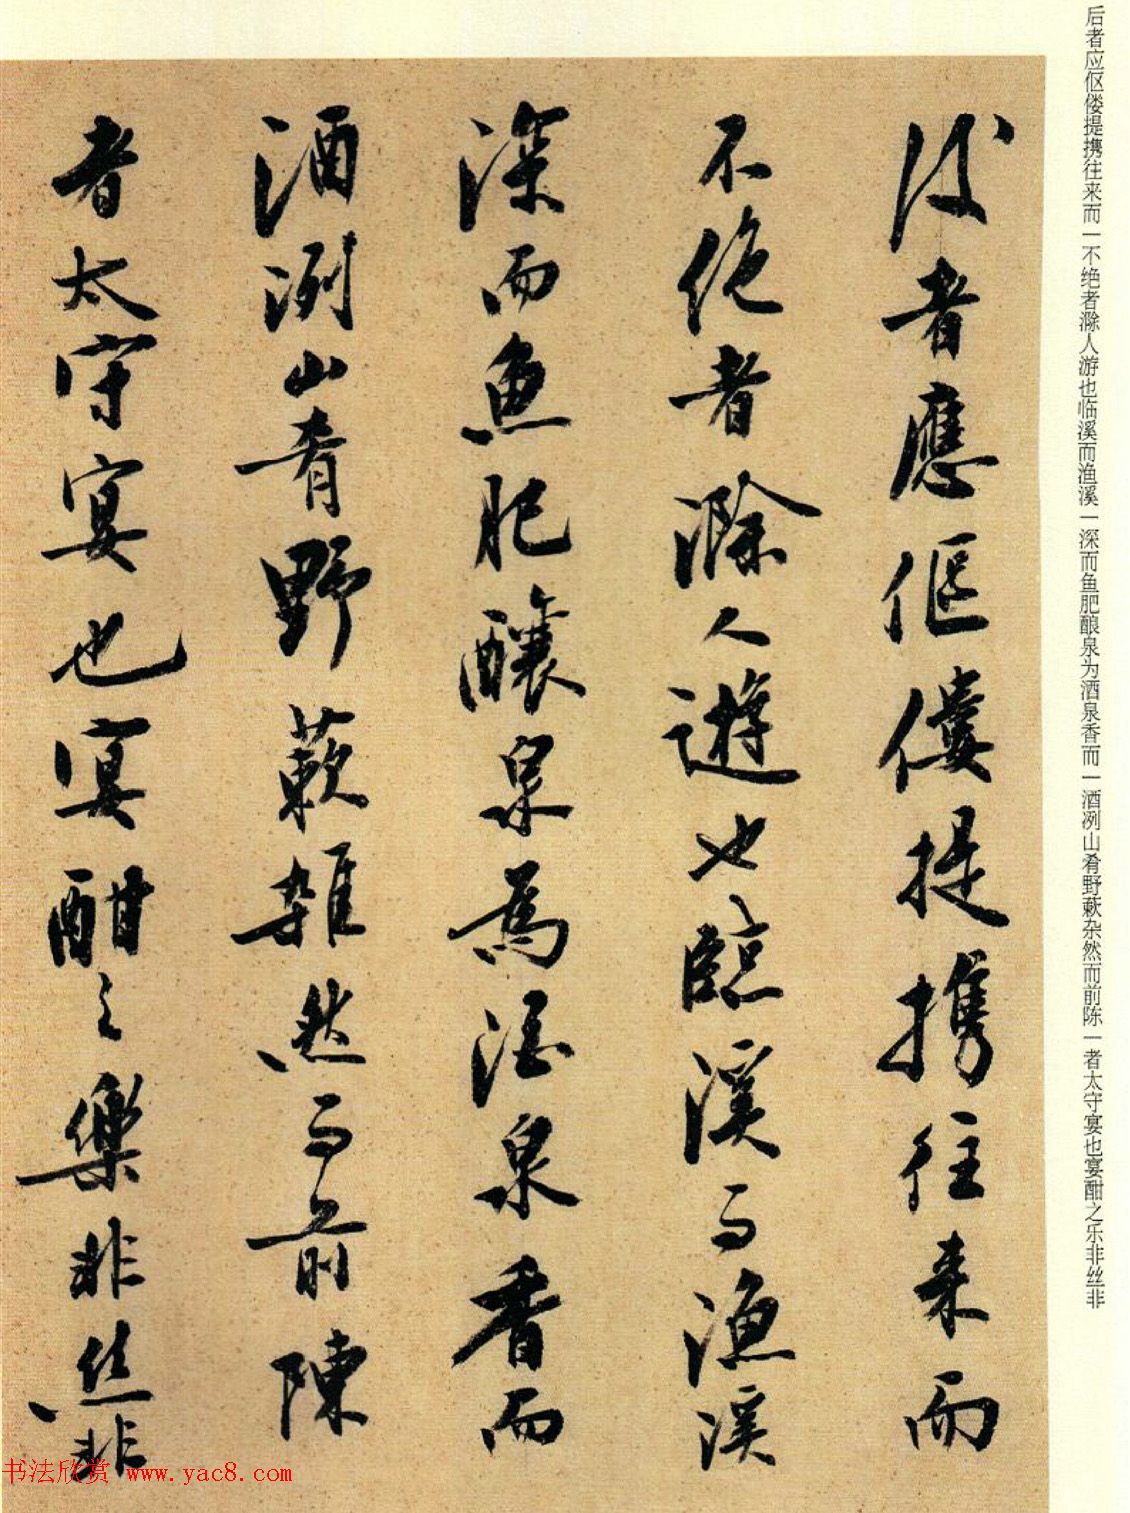 后者应伛偻提携往来而一不绝者滁人游也临溪而渔溪一深而鱼肥酿泉为酒泉香而一酒冽山肴野蔌杂然而前陈一者太守宴也宴酣之乐非丝非
後者應傴僂提攜往来而
不絶者滁人遊也臨溪而漁溪
深而魚肥釀泉為酒泉香而
酒洌山肴野蔌雜然而前陳
者太守宴也宴酣之樂非丝非
书法欣赏 www.yac8.com